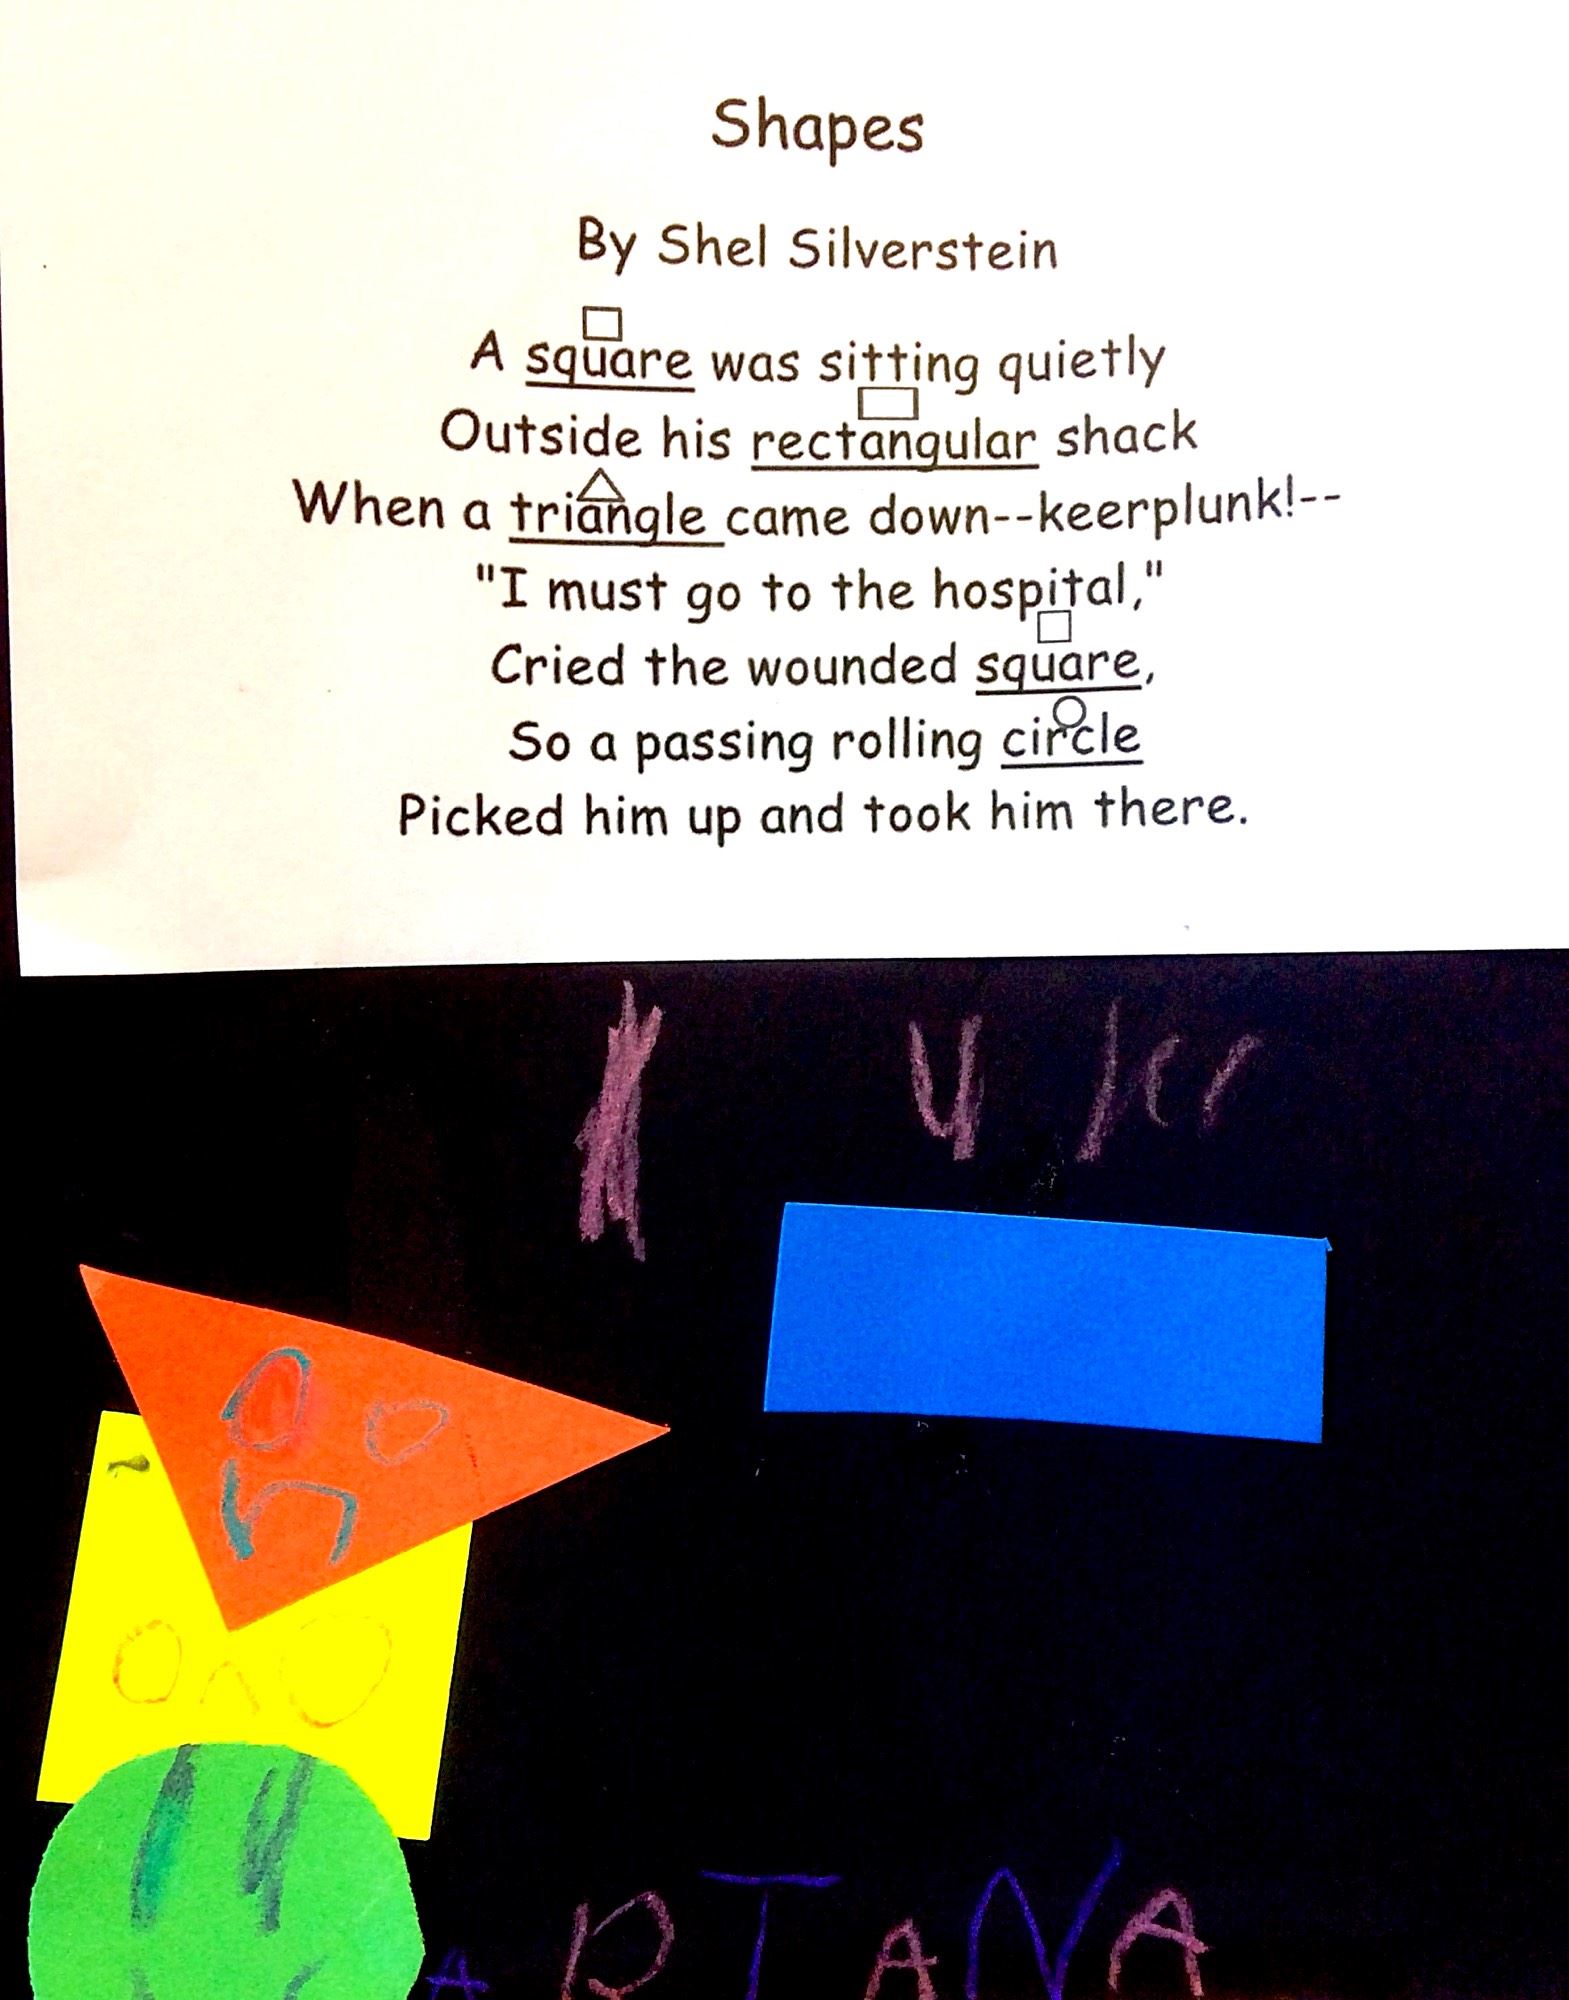 Shapes
By Shel Silverstein
A square was sitting quietly
Outside his rectangular shack
When a triangle came down--keerplunk!--
"I must go to the hospital,"
Cried the wounded square,
So a passing rolling circle
Picked him up and took him there.
ARIANA